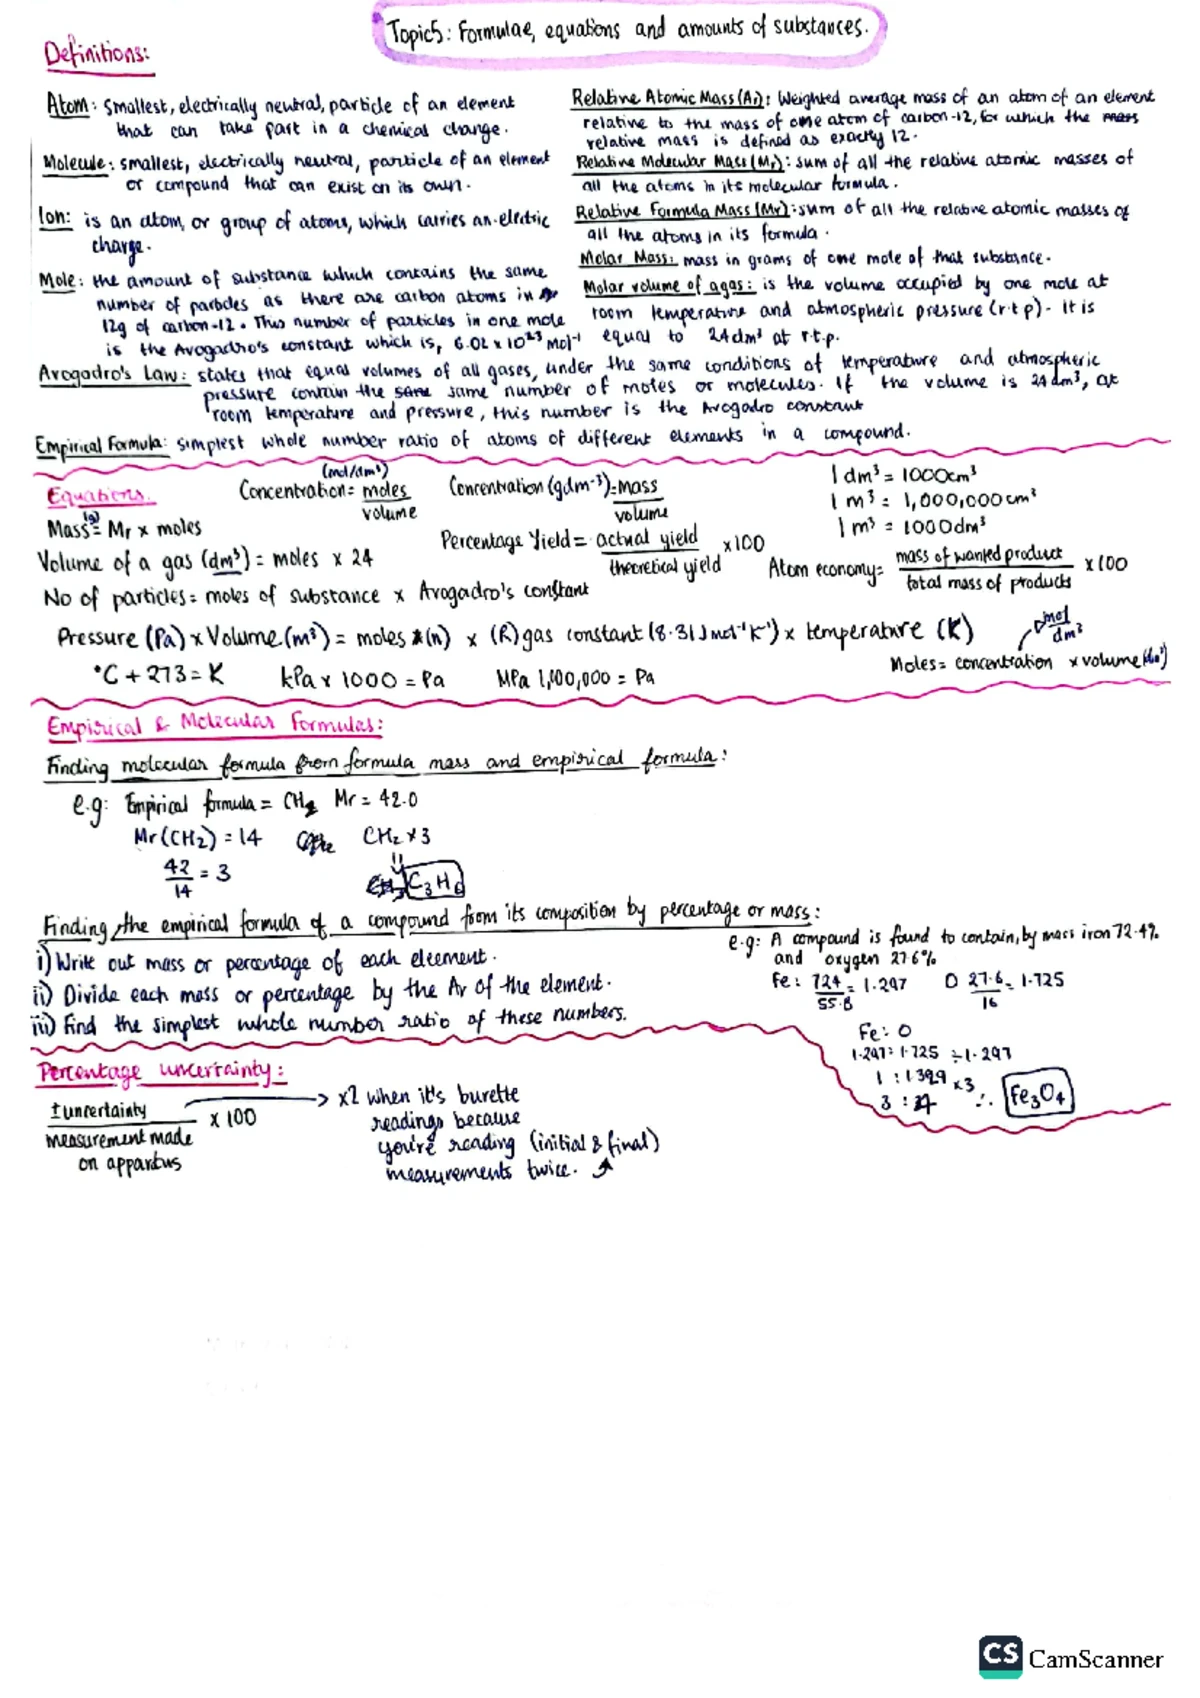 Topic 5: Formulae, equations and amounts of substances.
Definitions:
Atom: smallest, electrically neutral, particle of an element
that can take part in a chemical change.
Molecule: smallest, electrically neutral, particle of an element
or compound that can exist on its own.
Ion: is an atom, or group of atoms, which carries an electric
charge.
Mole: the amount of substance which contains the same
number of particles as there are carbon atoms in
12g of carbon-12. This number of particles in one mole
is the Avogadro's constant which is, 6.02 x 10²³ mol⁻¹
Relative Atomic Mass (Ar): Weighted average mass of an atom of an element
relative to the mass of one atom of carbon-12, for which the mass
relative mass is defined as exactly 12.
Relative Molecular Mass (Mr): sum of all the relative atomic masses of
all the atoms in its molecular formula.
Relative Formula Mass (Mr): sum of all the relative atomic masses of
all the atoms in its formula.
Molar Mass: mass in grams of one mole of that substance.
Molar volume of a gas: is the volume occupied by one mole at
room temperature and atmospheric pressure (r.t.p). It is
equal to 24dm³ at r.t.p.
Avogadro's Law: states that equal volumes of all gases, under the same conditions of temperature and atmospheric
pressure contain the same same number of moles or molecules. If the volume is 24dm³, at
room temperature and pressure, this number is the Avogadro constant
Empirical Formula: simplest whole number ratio of atoms of different elements in a compound.
Equations.
(mol/dm³)
Concentration = moles
volume
Concentration (gdm⁻³) = mass
volume
1 dm³ = 1000cm³
1 m³ = 1,000,000cm³
1 m³ = 1000dm³
Mass (g) = Mr x moles
Volume of a gas (dm³) = moles x 24
Percentage Yield = actual yield x100
theoretical yield
Atom economy = mass of wanted product x 100
total mass of products
No of particles = moles of substance x Avogadro's constant
Pressure (Pa) x Volume (m³) = moles (n) x (R) gas constant (8.31 J mol⁻¹ K⁻¹) x temperature (K)
mol
dm³
°C + 273 = K kPa x 1000 = Pa MPa 1,100,000 = Pa
Moles = concentration x volume (dm³)
Empirical & Molecular Formulas:
Finding molecular formula from formula mass and empirical formula:
e.g: Empirical formula = CH₂ Mr = 42.0
Mr (CH₂) = 14 CH₂ x 3
42 = 3
14
C₃H₆
Finding the empirical formula of a compound from its composition by percentage or mass:
i) Write out mass or percentage of each element.
ii) Divide each mass or percentage by the Ar of the element.
iii) Find the simplest whole number ratio of these numbers.
e.g: A compound is found to contain, by mass iron 72.4%
and oxygen 27.6%
Fe: 72.4 = 1.297 O 27.6 = 1.725
55.8 16
Fe : O
1.297 : 1.725 ÷ 1.297
1 : 1.329 x3
3 : 4 ∴ Fe₃O₄
Percentage uncertainty:
± uncertainty x 100
measurement made
on apparatus
x2 when it's burette
readings because
you're reading (initial & final)
measurements twice.
CS CamScanner